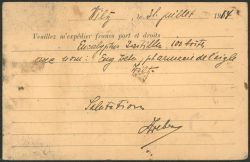 Wiltz, le 31 juillet 1884
Veuillez m'expédier franco port et droits
Eucalyptus pastilles 100 boîtes
avec nom: Eug. pharmacie de l'aigle
Wiltz
Salutations